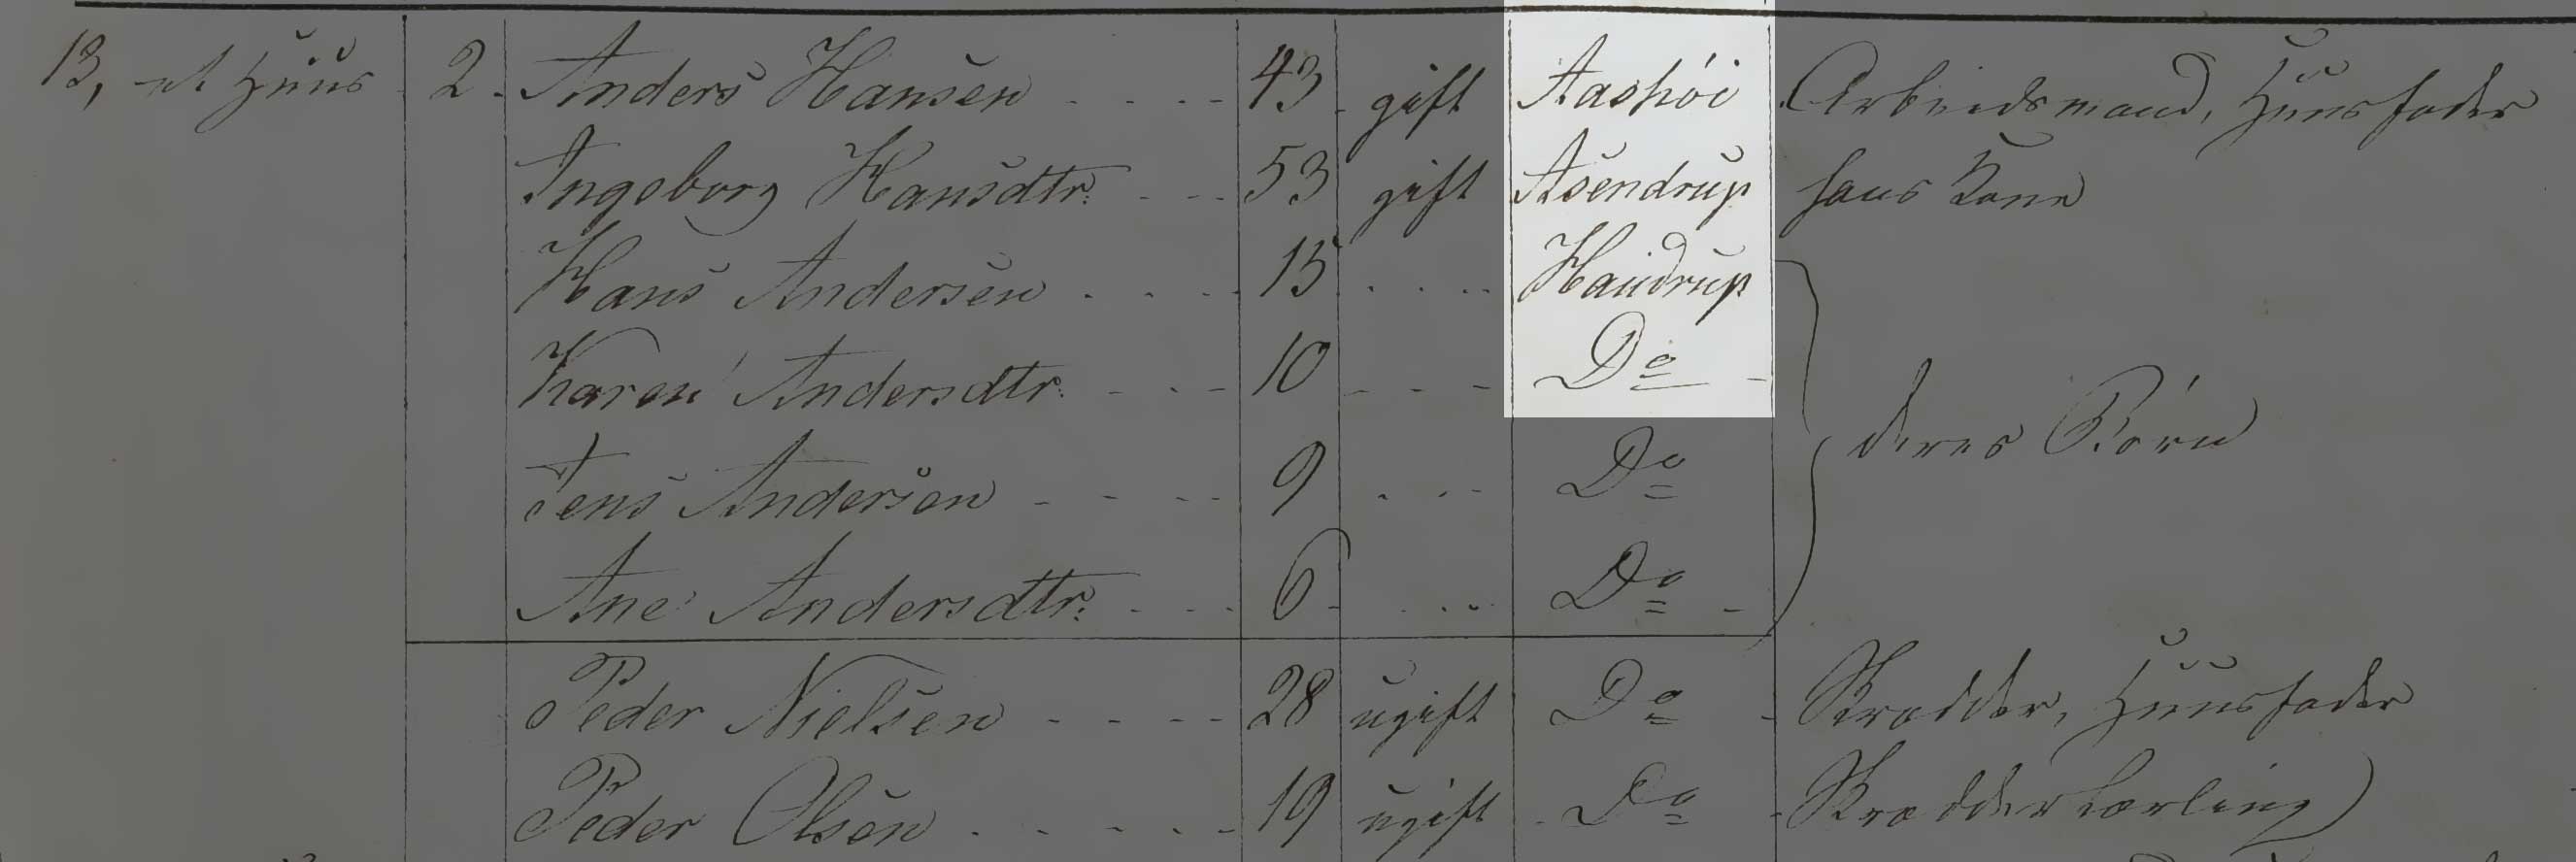 13, et Huus 2. Anders Hansen 43 gift Aashói Arbeidsmand, Huusfader
Ingeborg Hansdtr. 53 gift Asendrup hans Kone
Hans Andersen 15 Haudrup
Karen Andersdtr. 10 Do
deres Börn
Jens Andersen 9 Do
Ane Andersdtr. 6 Do
Peder Nielsen 28 ugift Do Skrædder, Huusfader
Peder Olsen 19 ugift Do Skrædderlærling